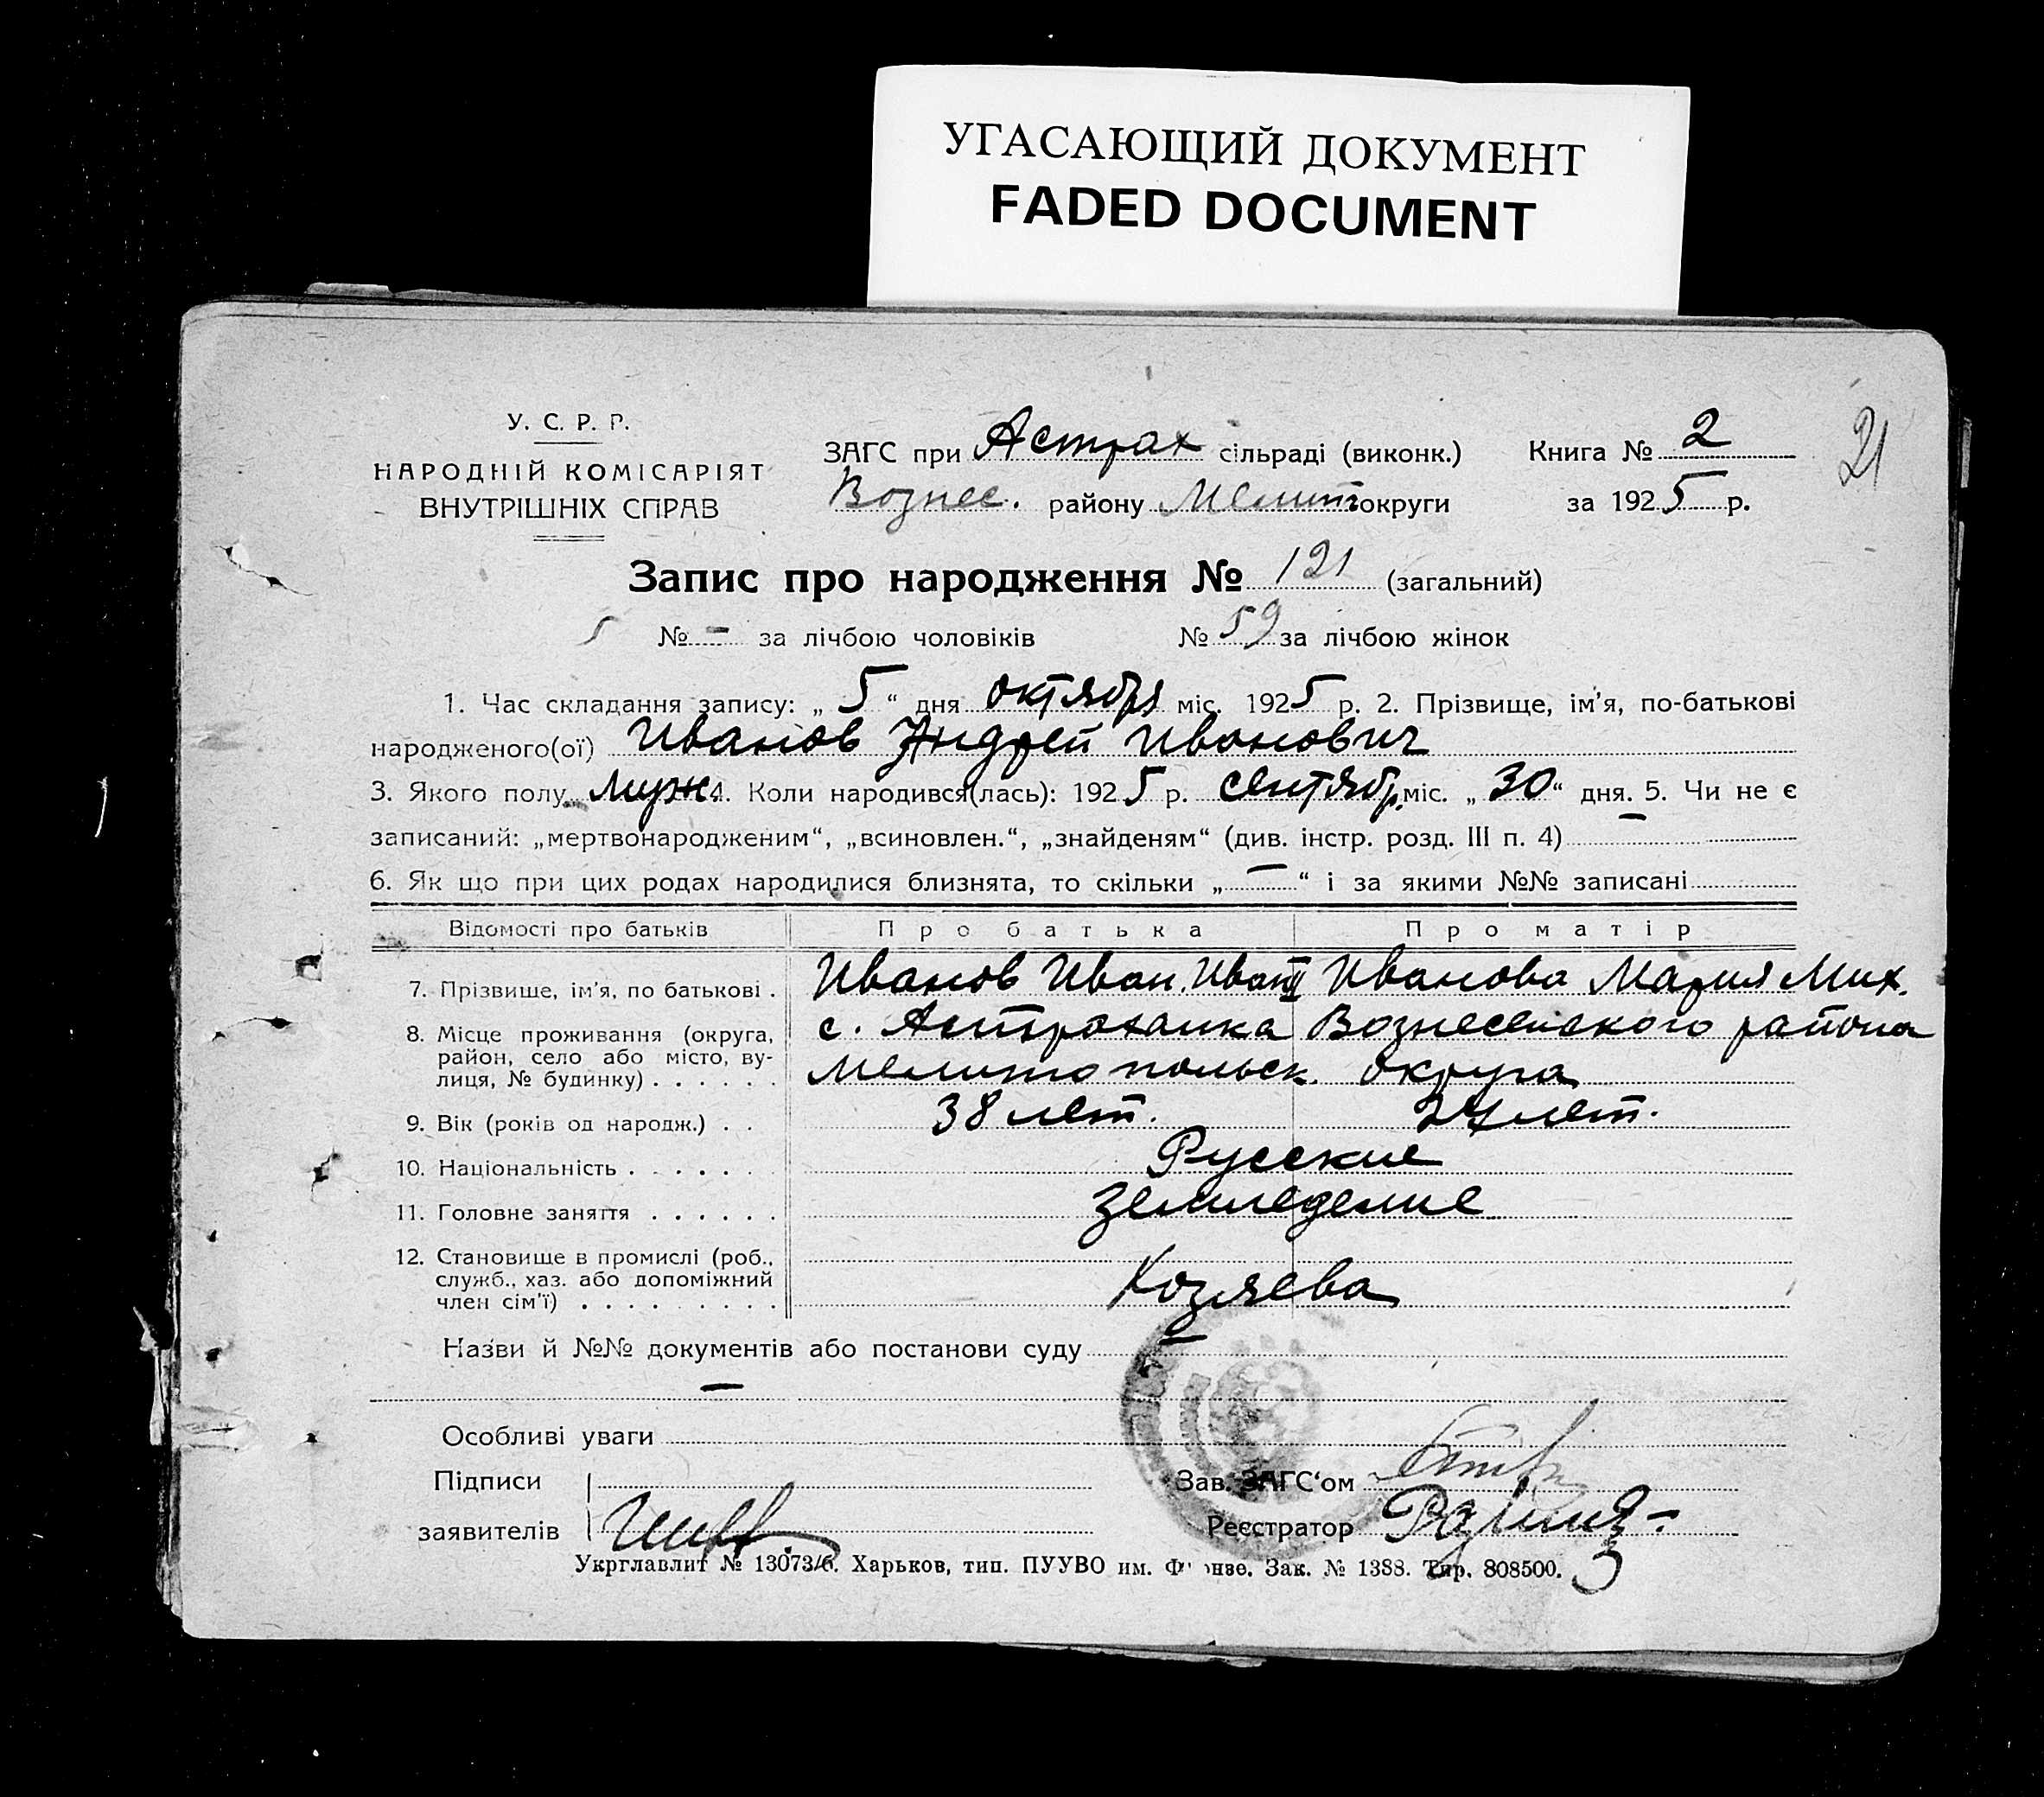 УГАСАЮЩИЙ ДОКУМЕНТ
FADED DOCUMENT
У. С. Р. Р.
НАРОДНІЙ КОМІСАРІЯТ
ВНУТРІШНІХ СПРАВ
ЗАГС при Астрах сільраді (виконк.)
Вознес. району Мелит округи
Книга № 2
за 1925 р.
21
Запис про народження № 121 (загальний)
№ - за лічбою чоловіків № 59 за лічбою жінок
1. Час складання запису: „ 5 “ дня октября міс. 1925 р. 2. Прізвище, ім'я, по-батькові
народженого(ої) Иванов Андрей Иванович
3. Якого полу муж. 4. Коли народився(лась): 1925 р. сентябр. міс. „ 30 “ дня. 5. Чи не є
записаний: „мертвонародженим“, „всиновлен.“, „знайденям“ (див. інстр. розд. III п. 4) —
6. Як що при цих родах народилися близнята, то скільки „ — “ і за якими №№ записані
Відомості про батьків Про батька Про матір
7. Прізвише, ім'я, по батькові . Иванов Иван. Иван Иванова Мария Мих.
8. Місце проживання (округа, с. Астраханка Вознесенского района
район, село або місто, ву-
лиця, № будинку) . . . . . . Мелитопольск. округа
9. Вік (років од народж.) . . 38 лет. 24 лет.
10. Національність . . . . . . . Русские
11. Головне заняття . . . . . . Земледелие
12. Становище в промислі (роб.,
служб., хаз. або допоміжний Козяева
член сім'ї) . . . . . . . . .
Назви й №№ документів або постанови суду —
—
Особливі уваги
Підписи
заявителів
Зав. ЗАГС‘ом
Реєстратор
Укрглавлит № 13073/б. Харьков, тип. ПУУВО им. Фрунзе. Зак. № 1388. Тир. 808500.